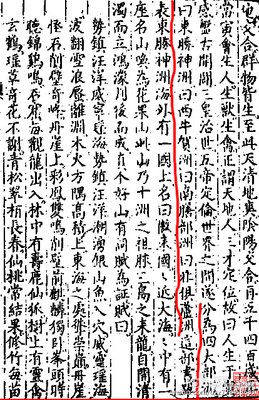 交合群物皆生至此天清地爽陰陽交合再五千四百歲
當寅會生人生獸生禽正謂天地人三才定位故曰人生
感盤古開闢三皇治世五帝定倫世界之間遂分為四大部洲
曰東勝神洲曰西牛賀洲曰南贍部洲曰北俱蘆洲這部書單
表東勝神洲海外有一國土名曰傲來國國近大海海中有一
座名山喚為花果山此山乃十洲之祖脉三島之來龍自開清
濁而立鴻濛判後而成真個好山有詞賦為証賦曰
勢鎮汪洋威寧瑤海勢鎮汪洋潮湧銀山魚入穴威寧瑤海
波翻雪浪蜃離淵水火方隅高積土東海之處聳崇巔丹崖
怪石削壁奇峰丹崖上彩鳳雙鳴削壁前麒麟獨臥峯頭時
聽錦雞鳴石窟每觀龍出入林中有壽鹿仙狐樹上有靈禽
玄鶴瑤草奇花不謝青松翠栢長春仙桃常結果修竹每留